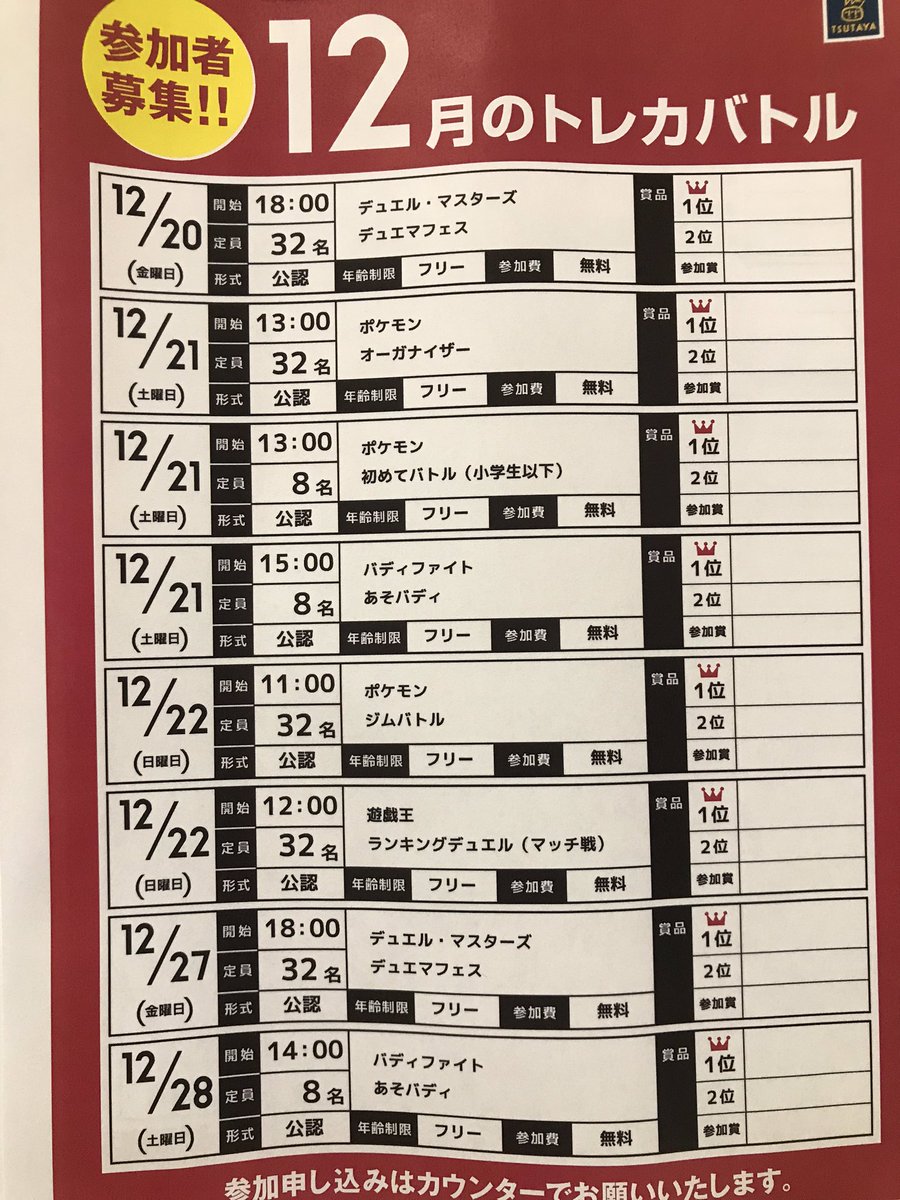 参加者
募集!!
12月のトレカバトル
TSUTAYA
12/20
(金曜日)
開始 18:00
定員 32名
形式 公認
デュエル・マスターズ
デュエマフェス
年齢制限 フリー 参加費 無料
賞品
1位
2位
参加賞
12/21
(土曜日)
開始 13:00
定員 32名
形式 公認
ポケモン
オーガナイザー
年齢制限 フリー 参加費 無料
賞品
1位
2位
参加賞
12/21
(土曜日)
開始 13:00
定員 8名
形式 公認
ポケモン
初めてバトル(小学生以下)
年齢制限 フリー 参加費 無料
賞品
1位
2位
参加賞
12/21
(土曜日)
開始 15:00
定員 8名
形式 公認
バディファイト
あそバディ
年齢制限 フリー 参加費 無料
賞品
1位
2位
参加賞
12/22
(日曜日)
開始 11:00
定員 32名
形式 公認
ポケモン
ジムバトル
年齢制限 フリー 参加費 無料
賞品
1位
2位
参加賞
12/22
(日曜日)
開始 12:00
定員 32名
形式 公認
遊戯王
ランキングデュエル(マッチ戦)
年齢制限 フリー 参加費 無料
賞品
1位
2位
参加賞
12/27
(金曜日)
開始 18:00
定員 32名
形式 公認
デュエル・マスターズ
デュエマフェス
年齢制限 フリー 参加費 無料
賞品
1位
2位
参加賞
12/28
(土曜日)
開始 14:00
定員 8名
形式 公認
バディファイト
あそバディ
年齢制限 フリー 参加費 無料
賞品
1位
2位
参加賞
参加申し込みはカウンターでお願いいたします。